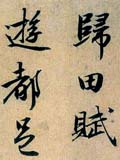 歸田賦
遊都邑